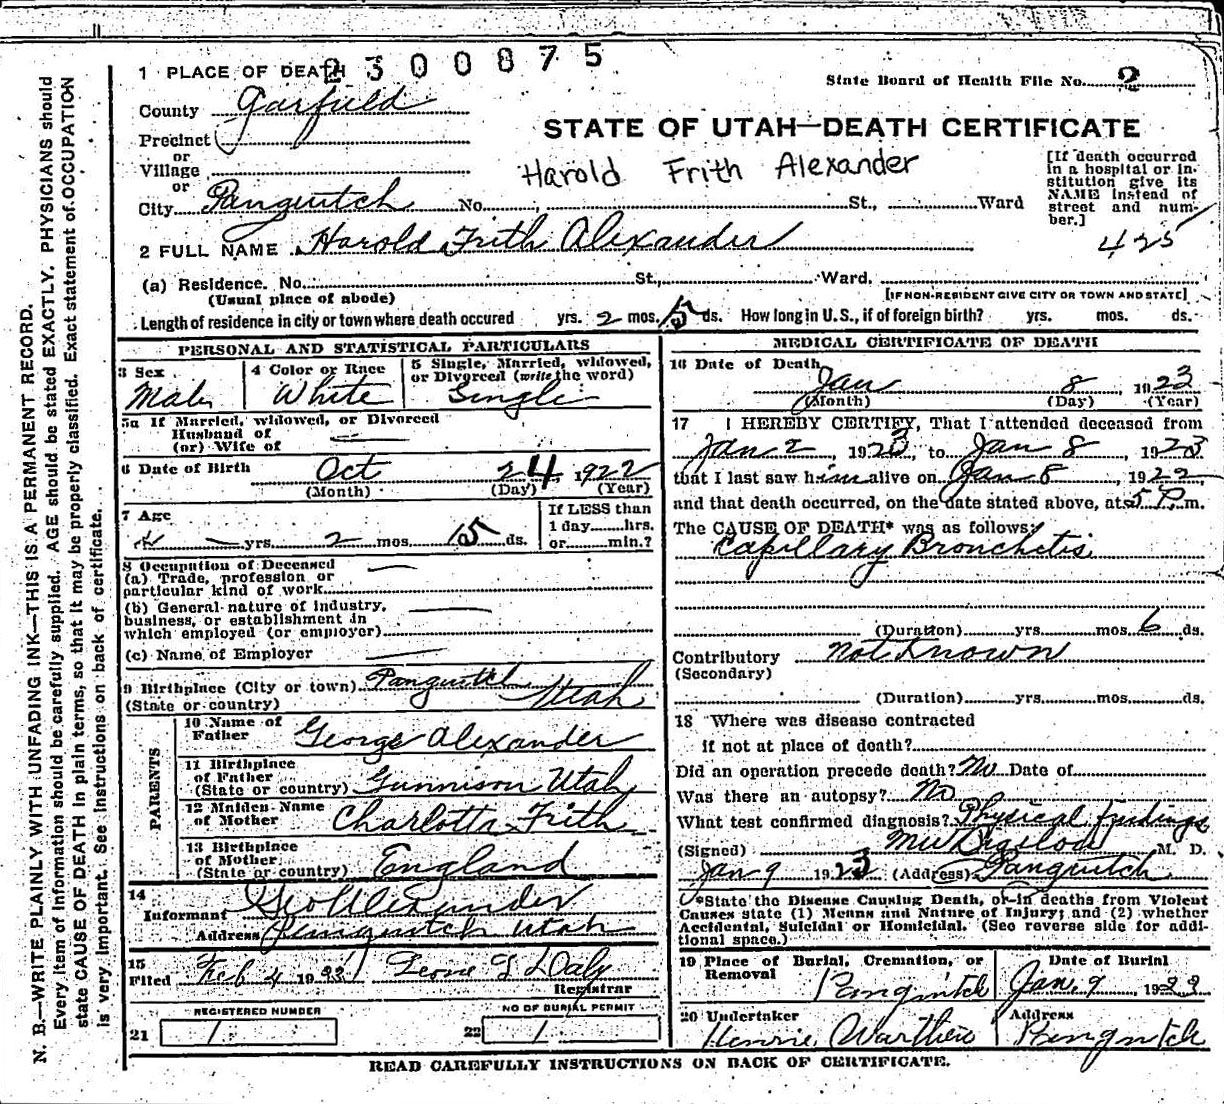 2300875
1 PLACE OF DEATH
State Board of Health File No. 2
County Garfield
STATE OF UTAH—DEATH CERTIFICATE
Precinct
or
Village
or
Harold Frith Alexander
[If death occurred in a hospital or institution give its NAME instead of street and number.]
City Panguitch No. St., Ward
425
2 FULL NAME Harold Frith Alexander
(a) Residence. No. St., Ward.
(Usual place of abode)
[IF NON-RESIDENT GIVE CITY OR TOWN AND STATE]
Length of residence in city or town where death occured yrs. 2 mos. 15 ds. How long in U.S., if of foreign birth? yrs. mos. ds.
PERSONAL AND STATISTICAL PARTICULARS
3 Sex Male
4 Color or Race White
5 Single, Married, widowed, or Divorced (write the word) Single
5a If Married, widowed, or Divorced
Husband of
(or) Wife of
6 Date of Birth Oct 24 1922
(Month) (Day) (Year)
7 Age
yrs. 2 mos. 15 ds.
If LESS than
1 day hrs.
or min.?
8 Occupation of Deceased
(a) Trade, profession or
particular kind of work
(b) General nature of industry,
business, or establishment in
which employed (or employer)
(c) Name of Employer
9 Birthplace (City or town) Panguitch
(State or country) Utah
PARENTS
10 Name of Father George Alexander
11 Birthplace of Father
(State or country) Gunnison Utah
12 Maiden Name of Mother Charlotta Frith
13 Birthplace of Mother
(State or country) England
14
Informant Geo Alexander
Address Panguitch Utah
15
Filed Feb 4 19 Daly
Registrar
REGISTERED NUMBER
21 1
NO OF BURIAL PERMIT
22 1
MEDICAL CERTIFICATE OF DEATH
16 Date of Death
Jan 8 1923
(Month) (Day) (Year)
17 I HEREBY CERTIFY, That I attended deceased from
Jan 2, 1923, to Jan 8, 1923
that I last saw him alive on Jan 8, 1922
and that death occurred, on the date stated above, at 5 P. m.
The CAUSE OF DEATH* was as follows:
Capillary Bronchetis
(Duration) yrs. mos. 6 ds.
Contributory Not Known
(Secondary)
(Duration) yrs. mos. ds.
18 Where was disease contracted
if not at place of death?
Did an operation precede death? No Date of
Was there an autopsy? No
What test confirmed diagnosis? Physical findings
(Signed) M. D.
Jan 9 1923 (Address) Panguitch
*State the Disease Causing Death, or in deaths from Violent
Causes state (1) Means and Nature of Injury; and (2) whether
Accidental, Suicidal or Homicidal. (See reverse side for additional space.)
19 Place of Burial, Cremation, or Removal Panguitch
Date of Burial Jan. 9, 19
20 Undertaker
Address Panguitch
READ CAREFULLY INSTRUCTIONS ON BACK OF CERTIFICATE.
N. B.—WRITE PLAINLY WITH UNFADING INK—THIS IS A PERMANENT RECORD.
Every item of information should be carefully supplied. AGE should be stated EXACTLY. PHYSICIANS should
state CAUSE OF DEATH in plain terms, so that it may be properly classified. Exact statement of OCCUPATION
is very important. See instructions on back of certificate.